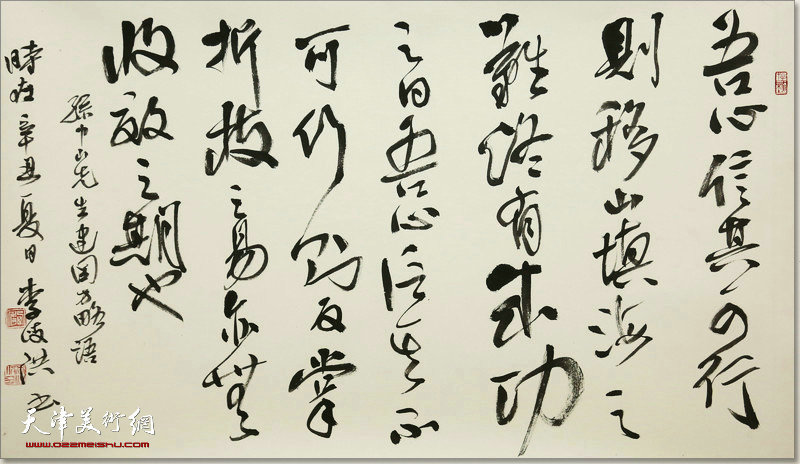 吾心信其可行
則移山填海之
難終有成功
之日吾心信其不
可行則反掌
折枝之易亦無
收效之期也
孫中山先生建国方略语
時在辛丑夏日李浚洪书
天津美術網
www.022meishu.com